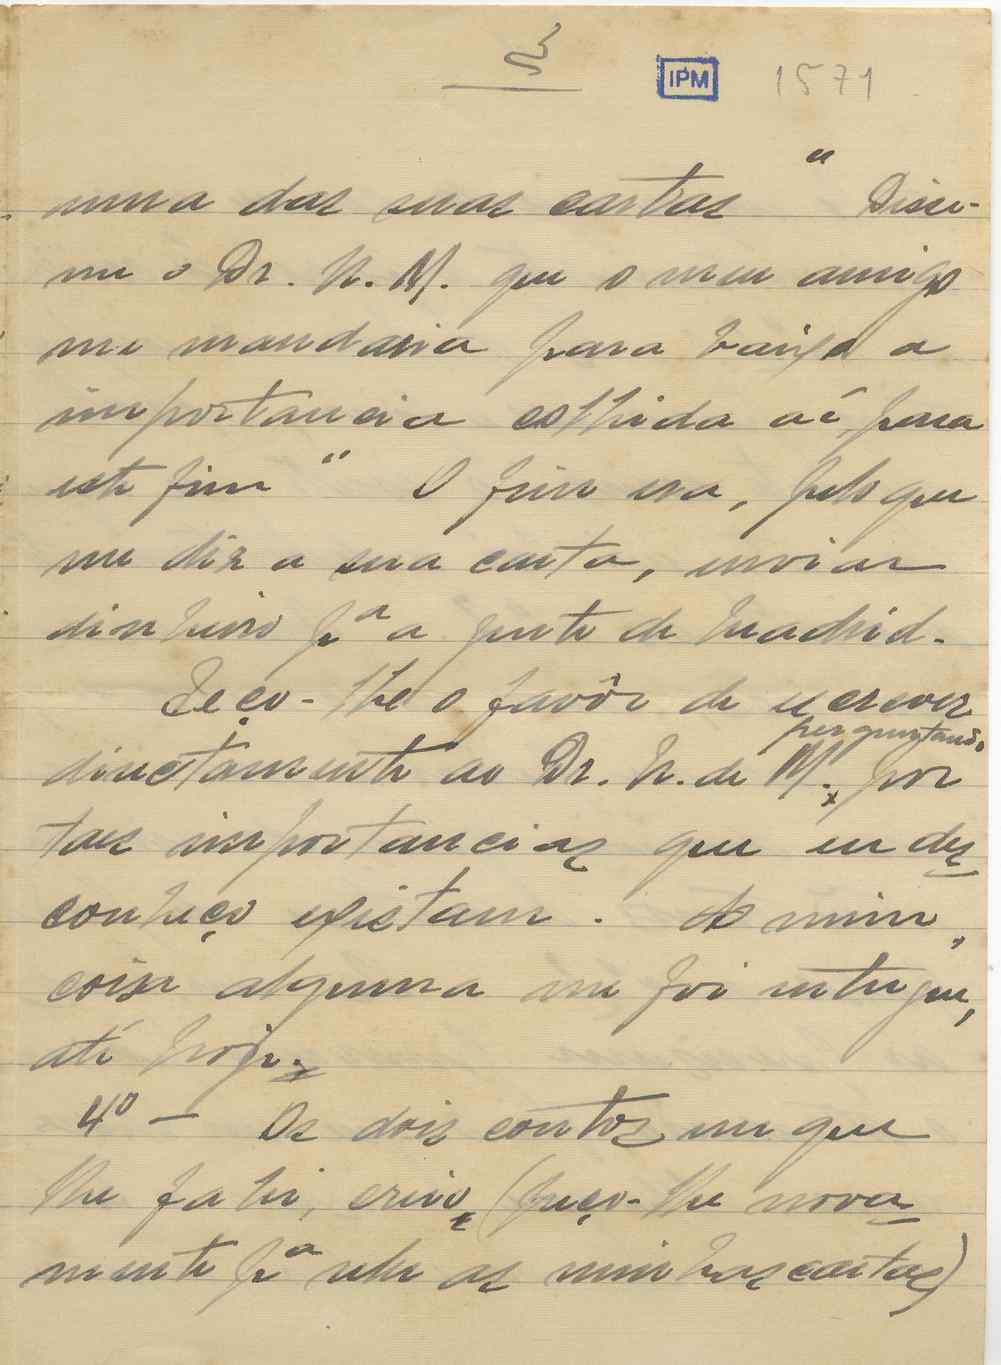 IPM 1571
numa das suas cartas " Disse-
me o Dr. N. M. que o meu amigo
me mandaria para baixo a
importancia colhida aí, para
este fim " O fim era, pelo que
me diz a sua carta, enviar
dinheiro pª a gente de Madrid.
Peço-lhe o favôr de escrever
perguntando
directamente ao Dr. N. de M., por
tais importancias que eu des
conheço existam. A mim,
coisa alguma me foi entregue,
até hoje.
4º — Os dois contos em que
lhe falei, creio, (peço-lhe nova
mente pª reler as minhas cartas)